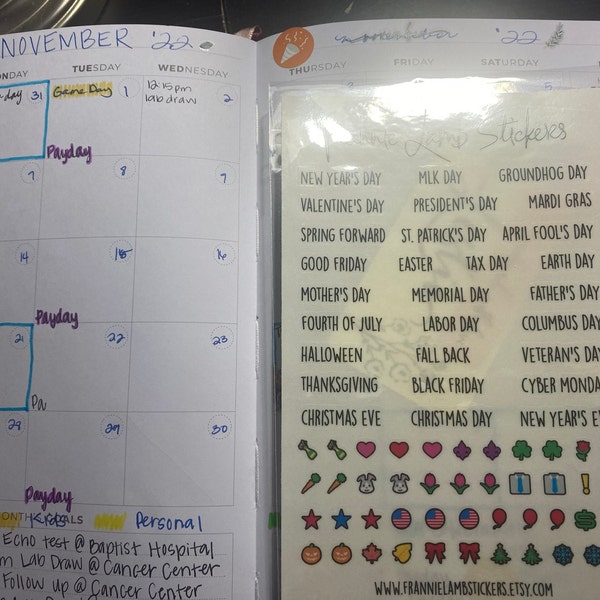 NOVEMBER '22
NDAY TUESDAY WEDNESDAY
day 31
Game Day 1
12:15pm 2
lab draw
Payday
7 8 9
14 15 16
Payday
21 22 23
Pa
29 29 30
Payday
MONTH ALS
Kids Personal
Echo test @ Baptist Hospital
m Lab Draw @ Cancer Center
Follow up @ Cancer Center
november '22
THURSDAY FRIDAY SATURDAY
Lamb Stickers
NEW YEAR'S DAY MLK DAY GROUNDHOG DAY
VALENTINE'S DAY PRESIDENT'S DAY MARDI GRAS
SPRING FORWARD ST. PATRICK'S DAY APRIL FOOL'S DAY
GOOD FRIDAY EASTER TAX DAY EARTH DAY
MOTHER'S DAY MEMORIAL DAY FATHER'S DAY
FOURTH OF JULY LABOR DAY COLUMBUS DAY
HALLOWEEN FALL BACK VETERAN'S DA
THANKSGIVING BLACK FRIDAY CYBER MONDA
CHRISTMAS EVE CHRISTMAS DAY NEW YEAR'S E
WWW.FRANNIELAMBSTICKERS.ETSY.COM